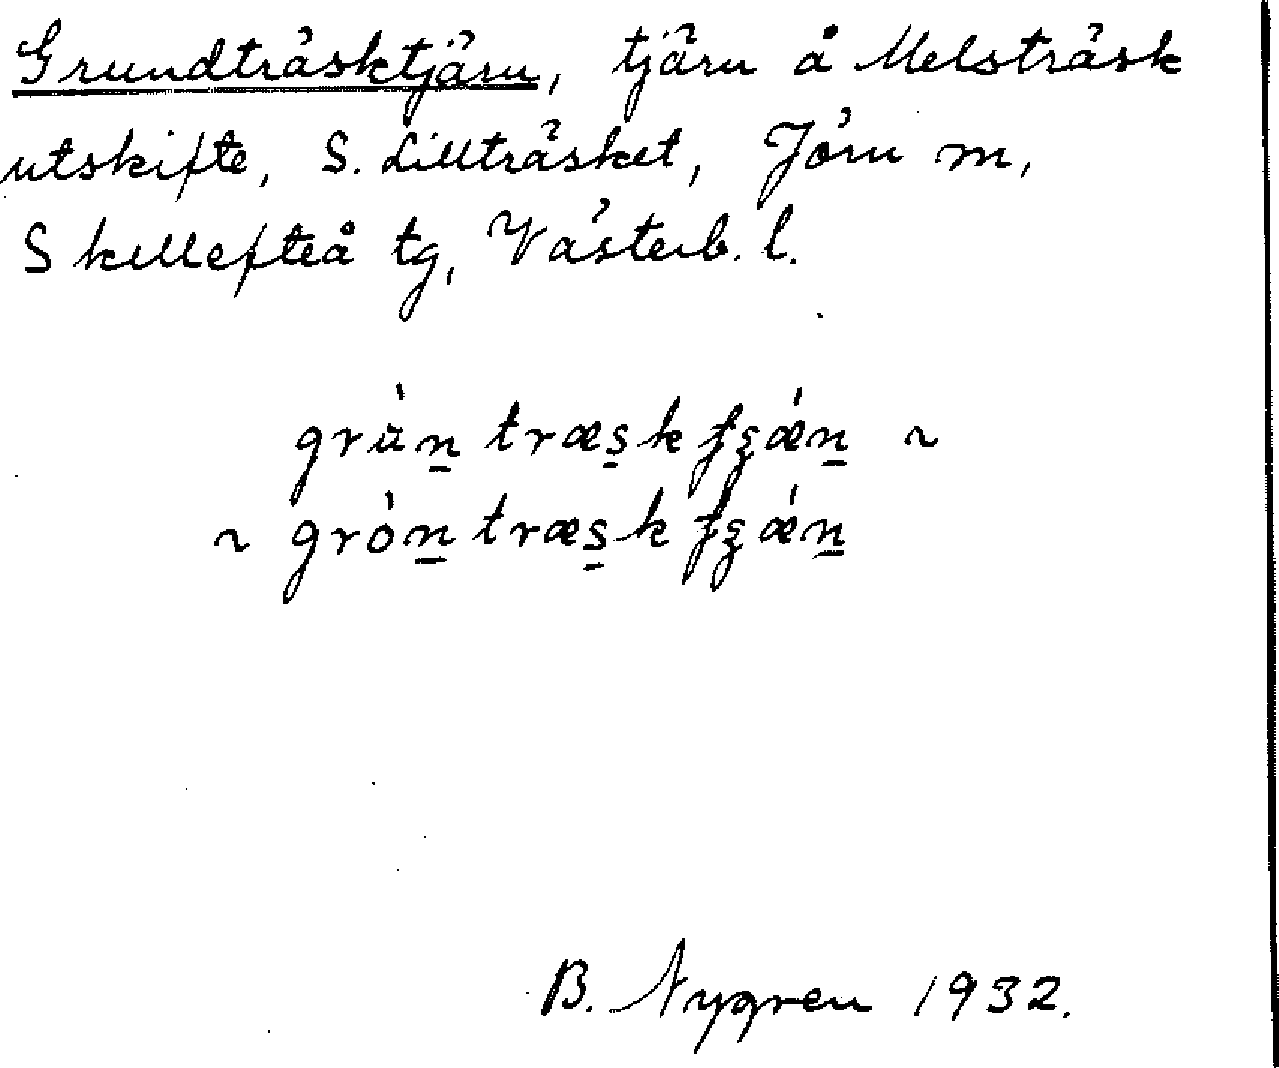 Grundträsktjärn, tjärn å Melsträsk
utskifte, S. Lillträsket, Jörn m,
Skellefteå tg, Västerb. l.
grùn̲ træs̲k tʂǽn̲ ~
~ grón̲ træs̲k tʂǽn̲
B. Nygren 1932.